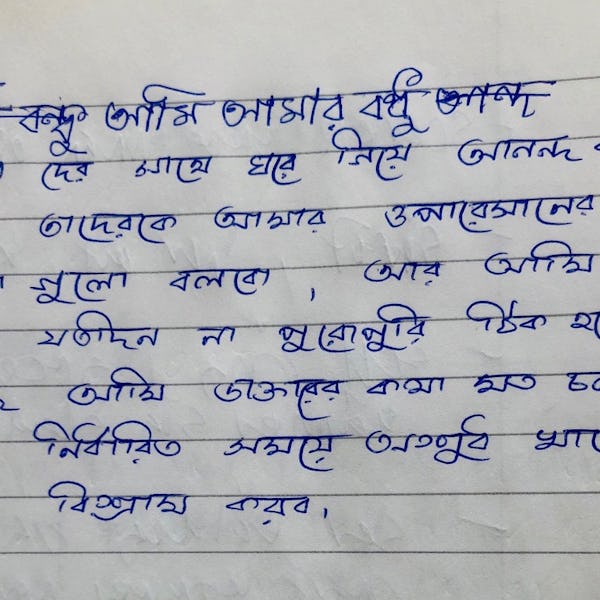 বন্ধু আমি আমার বন্ধু
দের সাথে ঘরে গিয়ে আনন্দ
তাদেরকে আমার ওপারেসানের
গুলো বলবো, আর আমি
যতদিন না পুরোপুরি ঠিক
আমি ডাক্তারের কথা মত
নির্ধারিত সময়ে
বিশ্রাম করব,